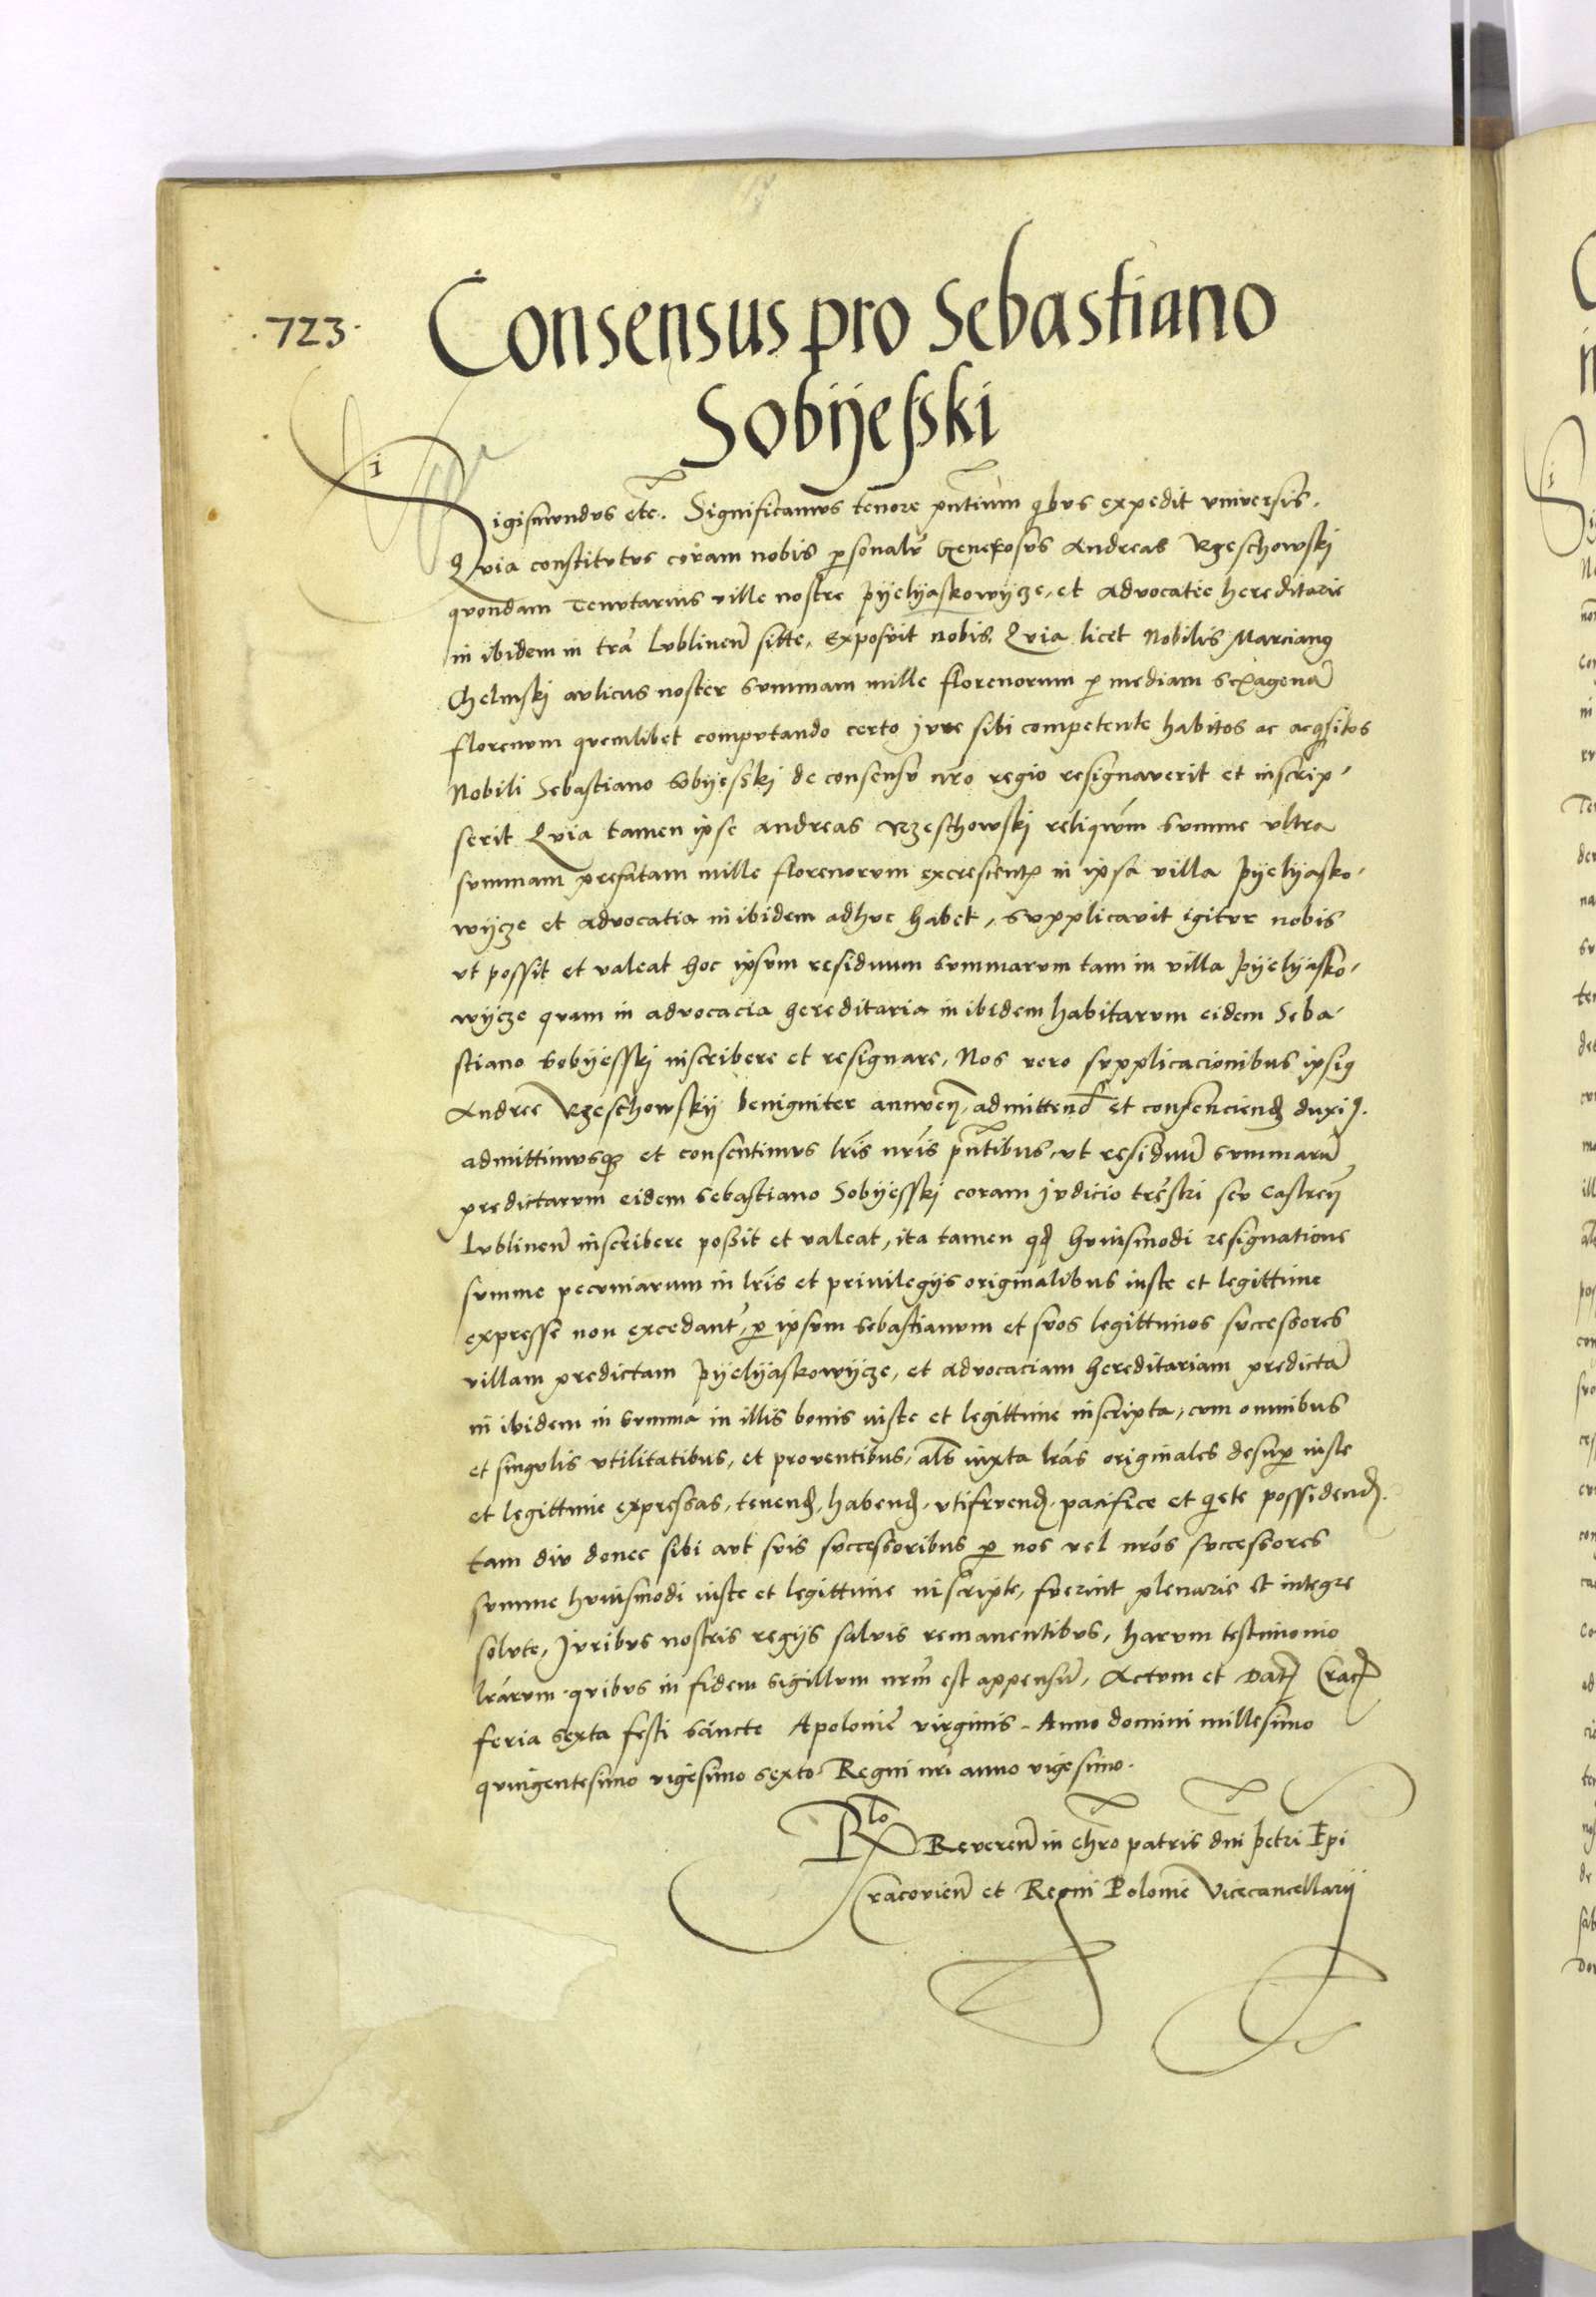 .723.
Consensus pro Sebastiano
Sobijesski
Sigismundus etc. Significamus tenore pntium qbus expedit universis.
Quia constitutus coram nobis psonalr Generosus Andreas Rzeschowski
quondam Tenutarius ville nostre Pijelijaskowijcze, et advocatie hereditarie
in ibidem in tra Lublinen sitte, exposuit nobis. Quia licet Nobilis Marcianus
Chelmskj aulicus noster summam mille florenorum p mediam sexagena
florenum quemlibet computando certo jure sibi competente habitos ac acqsitos
Nobili Sebastiano Sobijesskj de consensu nro regio resignaverit et inscrip-
serit Quia tamen ipse Andreas Rzeschowskj reliquum summe ultra
summam prefatam mille florenorum excrescentem in ipsa villa Pijelijasko-
wijcze et advocatia in ibidem adhuc habet, supplicavit igitur nobis
ut possit et valeat hoc ipsum residuum summarum tam in villa Pijelijasko-
wijcze quam in advocacia hereditaria in ibidem habitarum eidem Seba-
stiano Sobijesskj inscribere et resignare, Nos vero supplicacionibus ipsius
Andree Rzeschowskij benigniter annuen, admittend et consenciend duxim.
admittimusque et consentimus lris nris pntibus, ut residuu summaru
predictarum eidem Sebastiano Sobijesskj coram judicio trestri seu castren
Lublinen inscribere possit et valeat, ita tamen qd huiusmodi resignatione
summe pecuniarum in lris et privilegijs originalibus iuste et legittime
expresse non excedant, p ipsum Sebastianum et suos legittimos successores
villam predictam Pijelijaskowijcze, et advocaciam hereditariam predicta
in ibidem in summa in illis bonis iuste et legittime inscripta, cum omnibus
et singulis utilitatibus, et proventibus, als iuxta lras originales desup iuste
et legittime expressas, tenend, habend, utifruend, pacifice et qiete possidend.
tam diu donec sibi aut suis successoribus p nos vel nros successores
summe huiusmodi iuste et legittime inscripte, fuerint plenarie et integre
solute, Juribus nostris regijs salvis remanentibus, harum testimonio
lrarum. quibus in fidem sigillum nrm est appensu, Actum et Dat Crac
feria sexta festi sancte Apolonie virginis. Anno domini millesimo
quingentesimo vigesimo sexto Regni nri anno vigesimo.
Rlo Reveren in chro patris dni Petri Epi
Cracovien et Regni Polonie Vicecancellarij